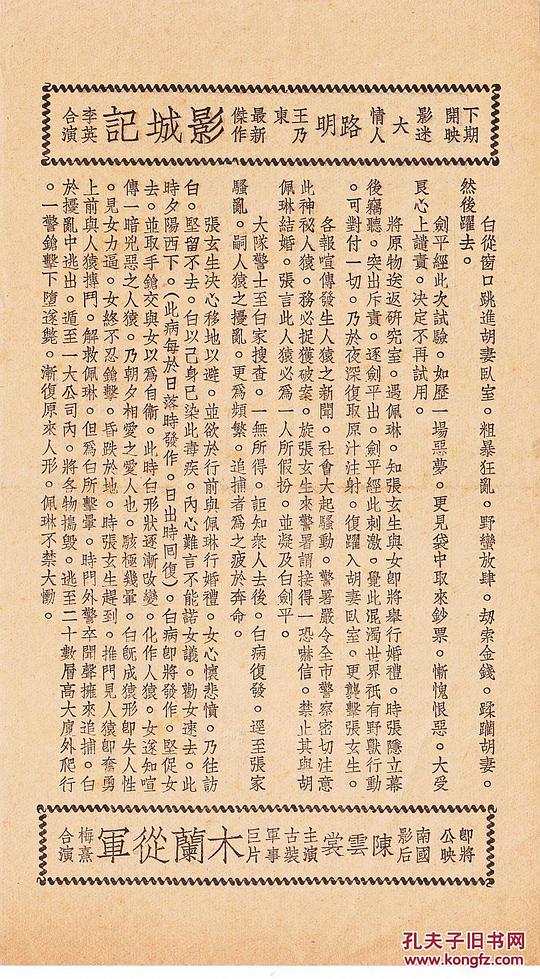 下期
開映
影迷
大
情人
路明
王乃
東
最新
傑作
影城記
李英
合演
白從窗口跳進胡妻臥室。粗暴狂亂。野蠻放肆。刼索金錢。蹂躪胡妻。
然後躍去。
劍平經此次試驗。如歷一場惡夢。更見袋中取來鈔票。慚愧恨惡。大受
良心上譴責。決定不再試用。
將原物送返研究室。遇佩琳。知張玄生與女卽將舉行婚禮。時張隱立幕
後竊聽。突出斥責。逐劍平出。劍平經此刺激。覺此混濁世界祇有野獸行動
。可對付一切。乃於夜深復取原汁注射。復躍入胡妻臥室。更襲擊張玄生。
各報喧傳發生人猿之新聞。社會大起騷動。警署嚴令全市警察密切注意
此神祕人猿。務必捉獲破案。旋張玄生來警署謂接得一恐嚇信。禁止其與胡
佩琳結婚。張言此人猿必為一人所假扮。並疑及白劍平。
大隊警士至白家搜查。一無所得。詎知衆人去後。白病復發。逕至張家
騷亂。嗣人猿之擾亂。更爲頻繁。追捕者爲之疲於奔命。
張玄生決心移地以避。並欲於行前與佩琳行婚禮。女心懷悲憤。乃往訪
白。堅留不去。白以己身已染此毒疾。內心難言不能諾女議。勸女速去。此
時夕陽西下。(此病每於日落時發作。日出時回復)。白病卽將發作。堅促女
去。並取手鎗交與女以爲自衞。此時白形狀逐漸改變。化作人猿。女遂知喧
傳一暗兇惡之人猿。乃朝夕相愛之愛人也。駭極幾暈。白旣成猿形卽失人性
。見女力逼。女終不忍鎗擊。昏跌於地。時張玄生趕到。推門見人猿卽奮勇
上前與人猿摶鬥。解救佩琳。但爲白所擊暈。時門外警卒聞聲擁來追捕。白
於擾亂中逃出。遁至一大公司內。將各物搗毀。逃至二十數層高大廈外爬行
。一警鎗擊下墮遂斃。漸復原來人形。佩琳不禁大慟。
卽將
公映
南國
影后
陳雲裳
主演
古裝
軍事
巨片
木蘭從軍
梅熹
合演
孔夫子旧书网
www.kongfz.com